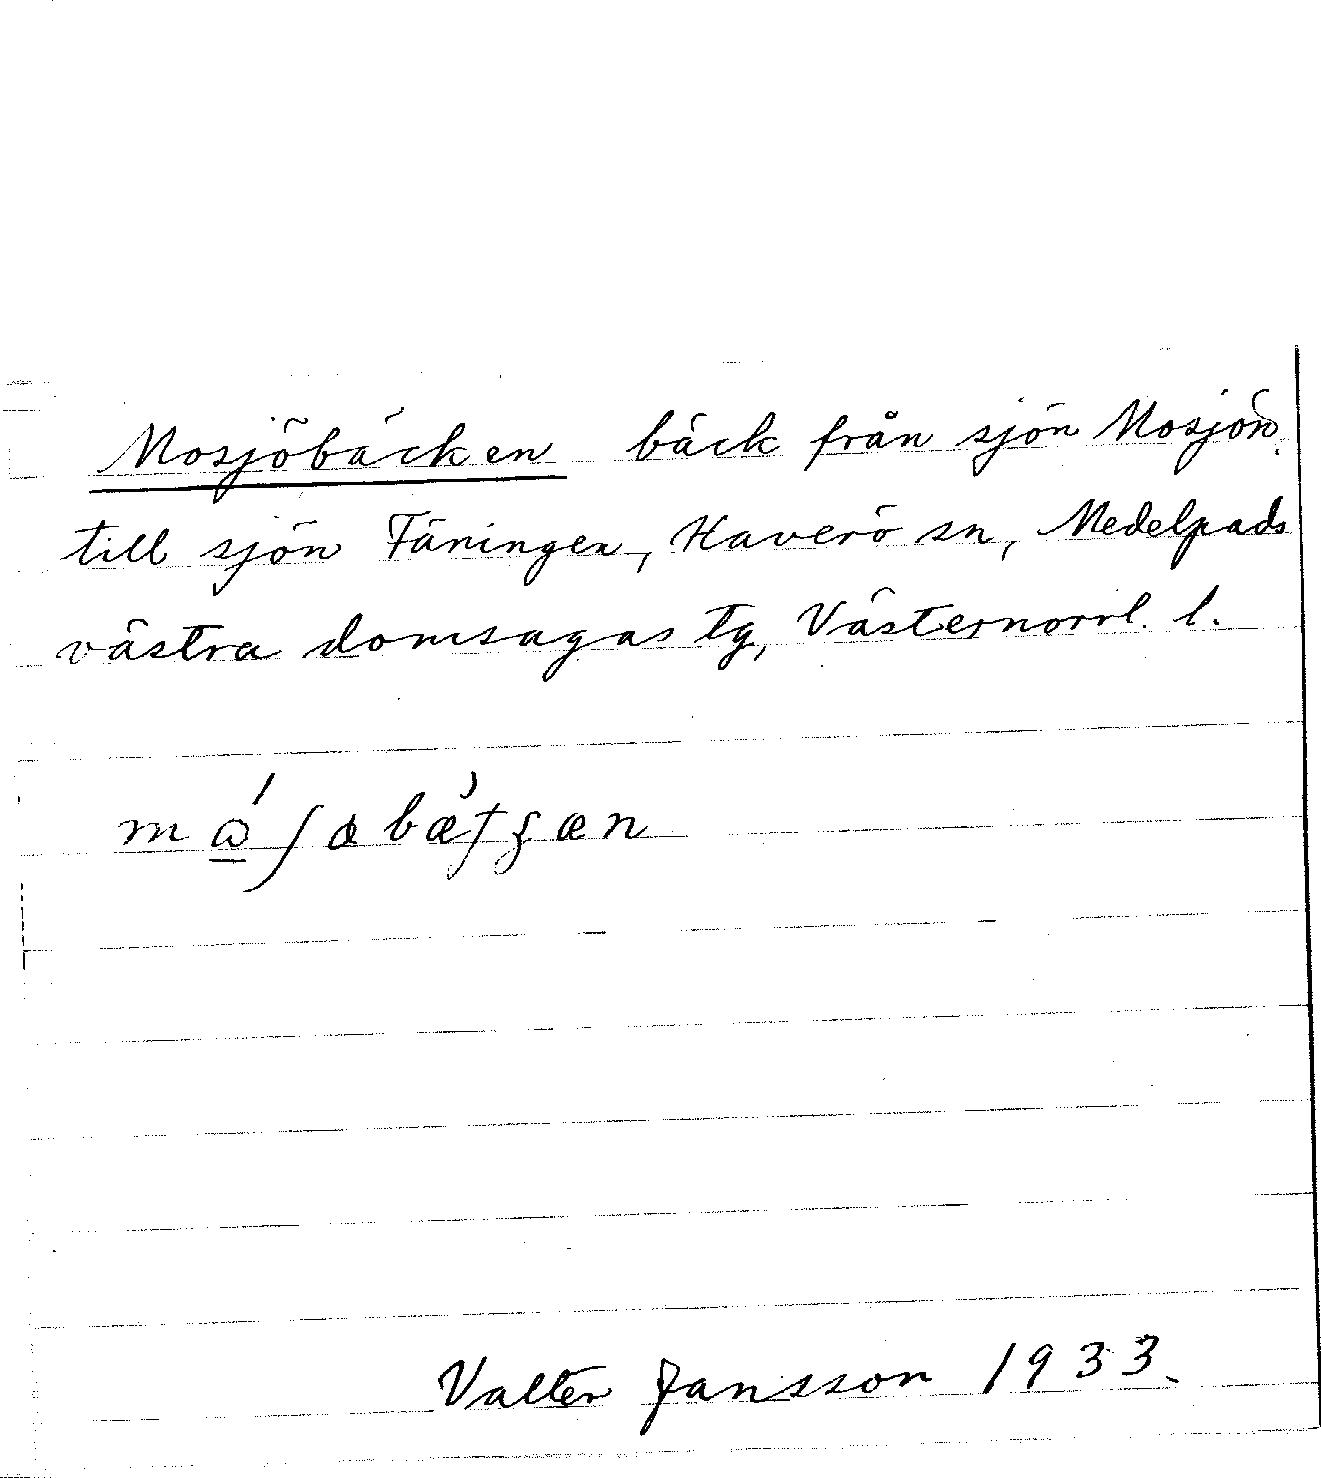 Mosjöbäcken bäck från sjön Mosjön
till sjön Täningen, Haverö sn, Medelpads
västra domsagas tg, Västernorrl. l.
Valter Jansson 1933.